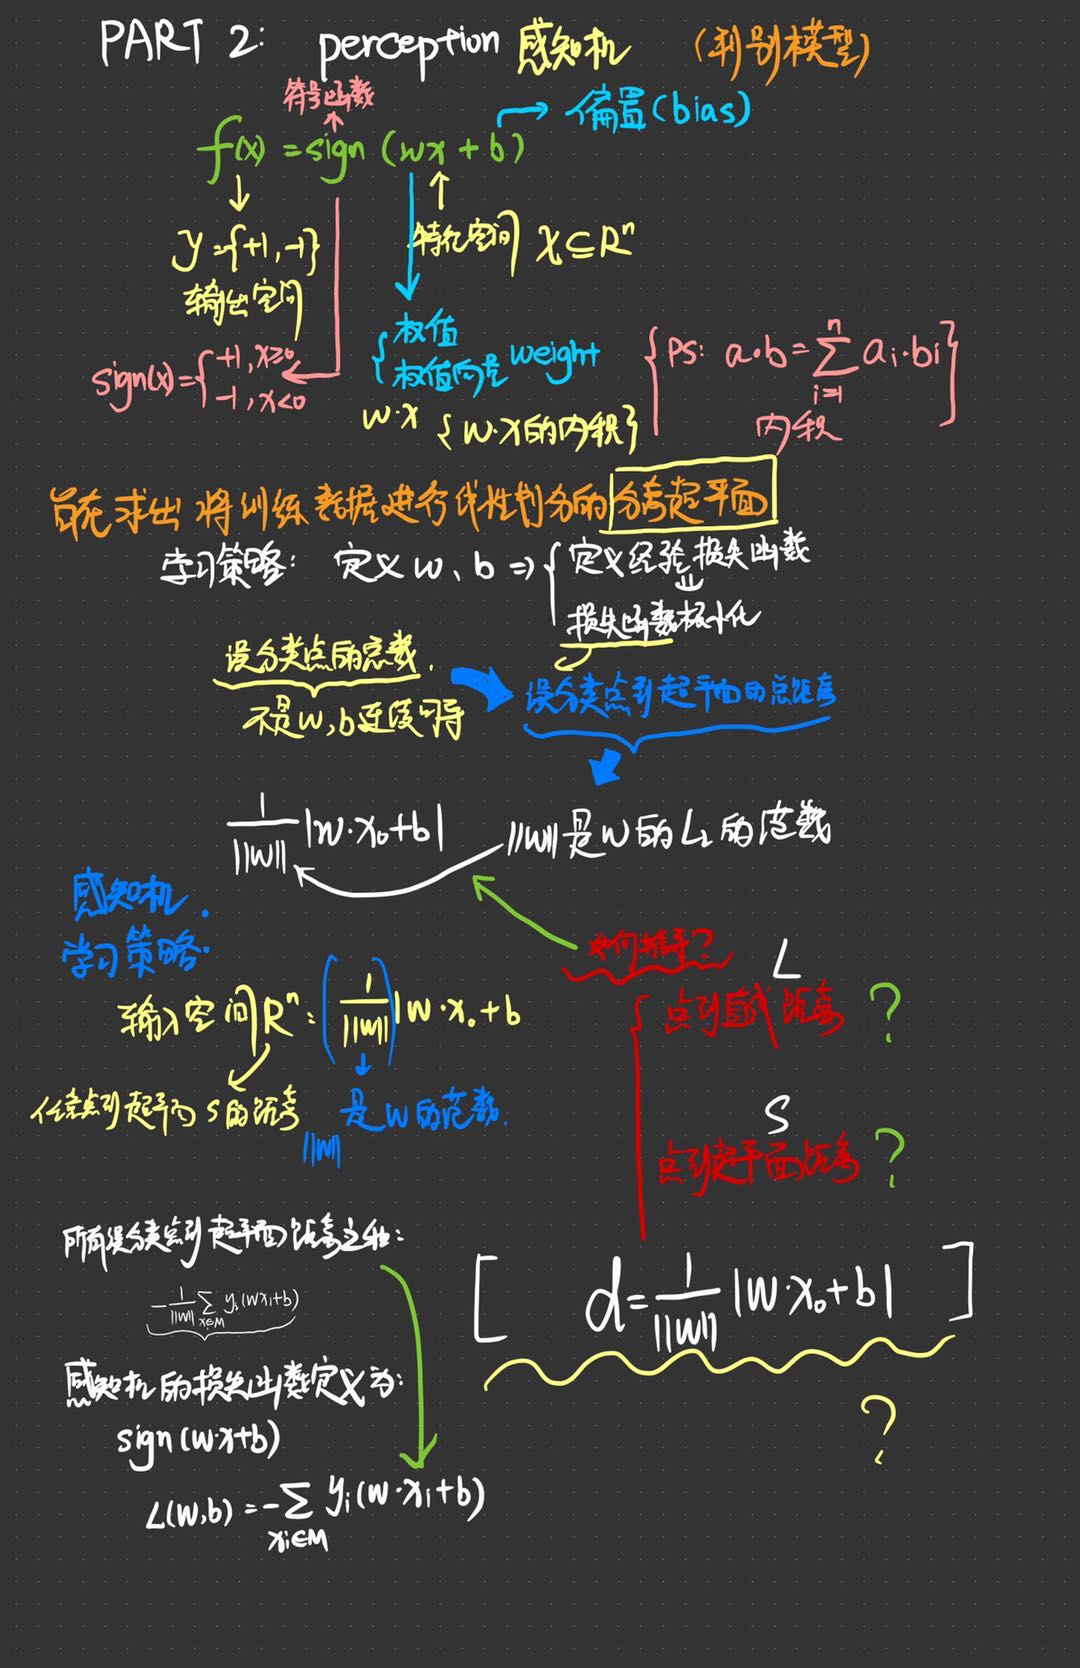 PART 2: perception 感知机 (判别模型)
符号函数
偏置(bias)
f(x) = sign (wx + b)
y={+1, -1}
输出空间
特征空间 X⊆Rⁿ
sign(x)={+1, x≥0
-1, x<0
权值
权值向量 weight
w·x {w·x的内积}
{PS: a·b=∑ᵢ₌₁ⁿ aᵢ·bᵢ}
内积
旨在求出将训练数据进行线性划分的分离超平面
学习策略: 定义w、b ⇒ {定义经验损失函数
⇓
损失函数极小化
误分类点的总数.
不是w,b连续可导
误分类点到超平面的总距离
1/||w|| |w·x₀+b|
||w||是w的L₂的范数
感知机.
学习策略.
如何推导?
输入空间Rⁿ: (1/||w||) |w·x₀+b
L
点到直线距离 ?
任意点到超平面S的距离
||w|| 是w的范数.
S
点到超平面距离 ?
所有误分类点到超平面距离之和:
-1/||w|| ∑x∈M yᵢ(wxᵢ+b)
[ d=1/||w|| |w·x₀+b| ]
?
感知机的损失函数定义为:
sign(w·x+b)
L(w,b) = -∑xᵢ∈M yᵢ(w·xᵢ+b)